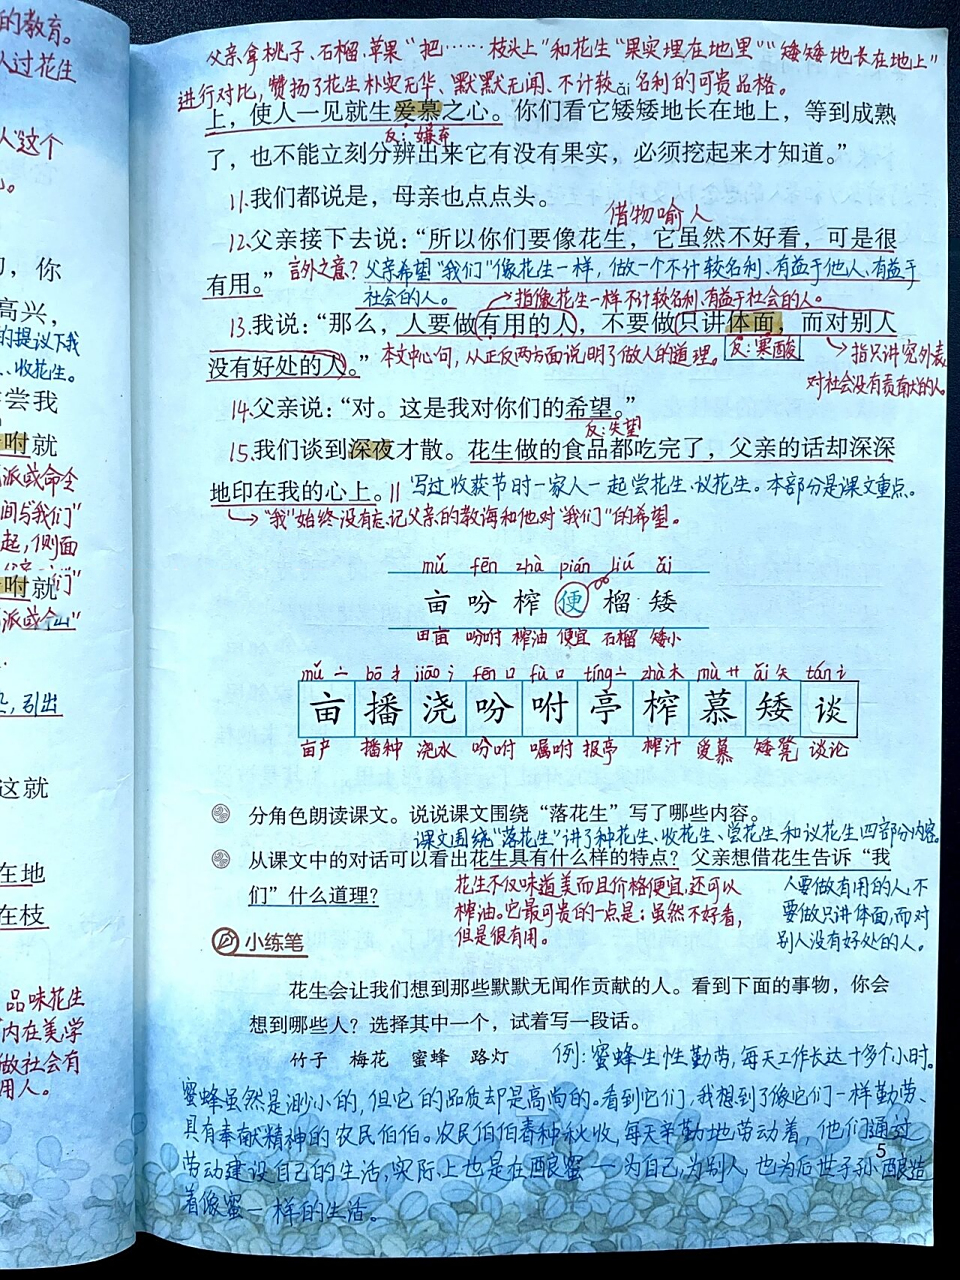 的教育。
人过花生
人"这个
，你
高兴，
的提议下我
、收花生。
尝我
咐就
派或命令
间与我们"
起，侧面
咐就
派或命令"
，引出
这就
在地
在枝
品味花生
内在美，学
做社会有
用人。
父亲拿桃子、石榴、苹果"把……枝头上"和花生"果实埋在地里""矮矮地长在地上"
进行对比，赞扬了花生朴实无华、默默无闻、不计较名利的可贵品格。
ǎi
上，使人一见就生爱慕之心。你们看它矮矮地长在地上，等到成熟
反：嫌弃
了，也不能立刻分辨出来它有没有果实，必须挖起来才知道。”
11.我们都说是，母亲也点点头。
借物喻人
12.父亲接下去说：“所以你们要像花生，它虽然不好看，可是很
有用。” 言外之意？父亲希望"我们"像花生一样，做一个不计较名利、有益于他人、有益于
社会的人。 指像花生一样不计较名利、有益于社会的人。
13.我说：“那么，人要做有用的人，不要做只讲体面，而对别人
没有好处的人。” 本文中心句，从正反两方面说明了做人的道理。 反：寒酸 指只讲究外表，
对社会没有贡献的人。
14.父亲说：“对。这是我对你们的希望。”
反：失望
15.我们谈到深夜才散。花生做的食品都吃完了，父亲的话却深深
地印在我的心上。|| 写过收获节时一家人一起尝花生、议花生。本部分是课文重点。
"我"始终没有忘记父亲的教诲和他对"我们"的希望。
mǔ fēn zhà pián liú ǎi
亩 吩 榨 便 榴 矮
田亩 吩咐 榨油 便宜 石榴 矮小
mǔ 亠 bō 扌 jiāo 氵 fēn 口 fù 口 tíng 亠 zhà 木 mù 艹 ǎi 矢 tán 讠
亩 播 浇 吩 咐 亭 榨 慕 矮 谈
亩产 播种 浇水 吩咐 嘱咐 报亭 榨汁 爱慕 矮凳 谈论
分角色朗读课文。说说课文围绕“落花生”写了哪些内容。
课文围绕"落花生"讲了种花生、收花生、尝花生和议花生四部分内容。
从课文中的对话可以看出花生具有什么样的特点？父亲想借花生告诉“我
们”什么道理？
花生不仅味道美而且价格便宜，还可以
榨油。它最可贵的一点是：虽然不好看，
但是很有用。
人要做有用的人，不
要做只讲体面，而对
别人没有好处的人。
小练笔
花生会让我们想到那些默默无闻作贡献的人。看到下面的事物，你会
想到哪些人？选择其中一个，试着写一段话。
竹子 梅花 蜜蜂 路灯 例：蜜蜂生性勤劳，每天工作长达十多个小时。
蜜蜂虽然是渺小的，但它的品质却是高尚的。看到它们，我想到了像它们一样勤劳、
具有奉献精神的农民伯伯。农民伯伯春种秋收，每天辛勤地劳动着，他们通过
劳动建设自己的生活，实际上也是在酿蜜——为自己，为别人，也为后世子孙酿造
着像蜜一样的生活。
5